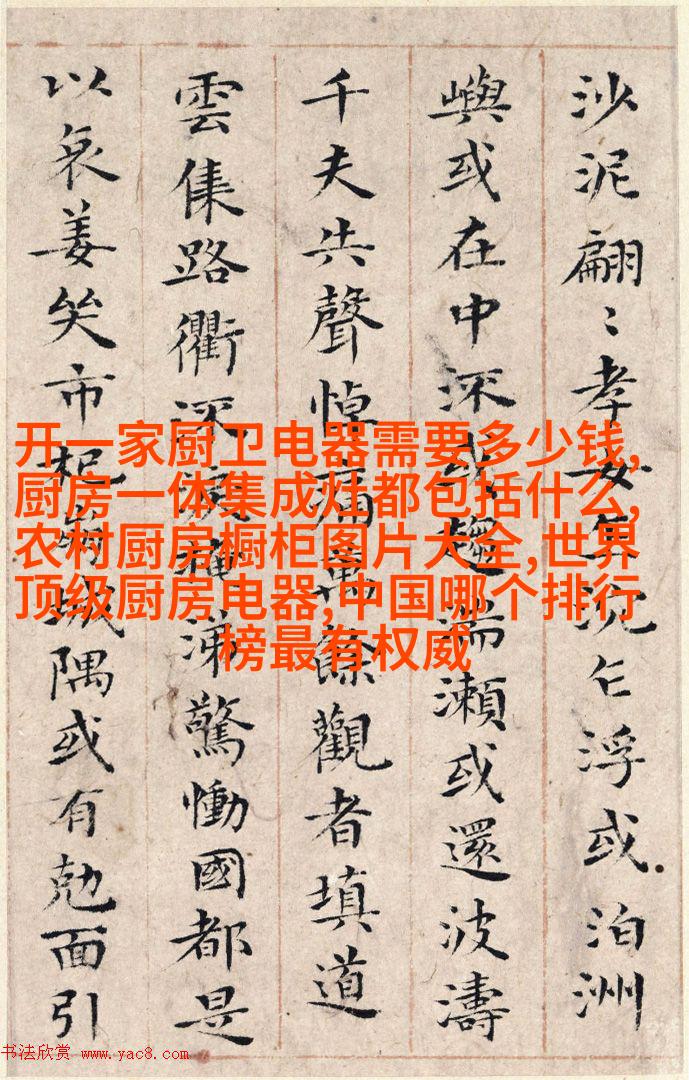 沙泥翩〻孝女乍沉乍浮或泊洲
嶼或在中流或趨湍瀬或還波濤
千夫共聲悼痛萬餘觀者填道
雲集路衢泣淚掩涕驚慟國都是
以哀姜哭市杞崩城隅或有尅面引
开一家厨卫电器需要多少钱,
厨房一体集成灶都包括什么,
农村厨房橱柜图片大全,世界
顶级厨房电器,中国哪个排行
榜最有权威
书法欣赏 www.yac8.com